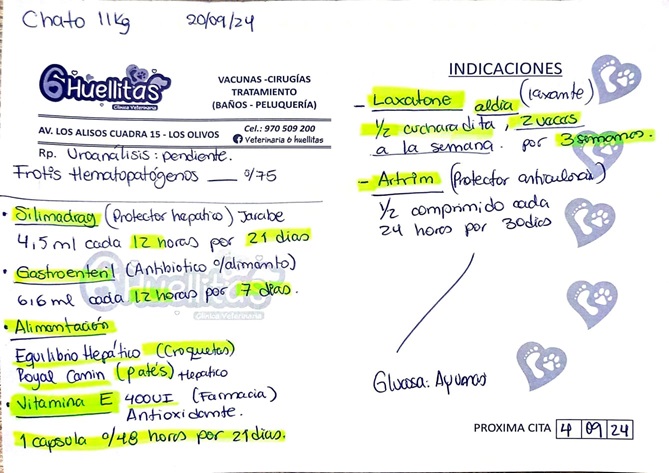 Chato 11kg 20/09/24
6 Huellitas
Clínica Veterinaria
VACUNAS -CIRUGÍAS
TRATAMIENTO
(BAÑOS - PELUQUERÍA)
AV. LOS ALISOS CUADRA 15 - LOS OLIVOS
Cel.: 970 509 200
Veterinaria 6 huellitas
Rp. Uroanálisis : pendiente.
Frotis Hematopatógenos — 0/75
• Silimadrag (Protector hepático) Jarabe
4,5 ml cada 12 horas por 21 dias
• Gastroenteril (Antibiotico c/alimento)
6.6 ml cada 12 horas por 7 días.
• Alimentación
Equilibrio Hepático (Croquetas)
Royal Canin (patés) Hepático
• Vitamina E 400UI (Farmacia)
Antioxidante.
1 capsula c/48 horas por 21 dias.
INDICACIONES
- Laxatone al día (laxante)
1/2 cucharadita, 2 veces
a la semana. por 3 semanas.
- Artrim (Protector articular)
1/2 comprimido cada
24 horas por 30 dias
Glucosa: Ayunas
PROXIMA CITA 4 09 24